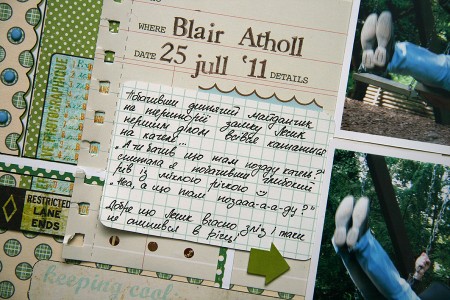 WHERE Blair Atholl
DATE 25 jull '11 DETAILS
Побачивши дитячий майданчик
на території замку
першим ділом всівся кататися
на качелі...
"А ти бачив що там позаду качелі?"
спитала я, побачивши глибокий
рів із мілкою річкою
"Неа, а що там позааа-а-ду?"
Добре що вчасно зліз і таки
не опинився в річці!
PHOTOGRAPHIQUE
RESTRICTED
LANE
ENDS
keeping cool